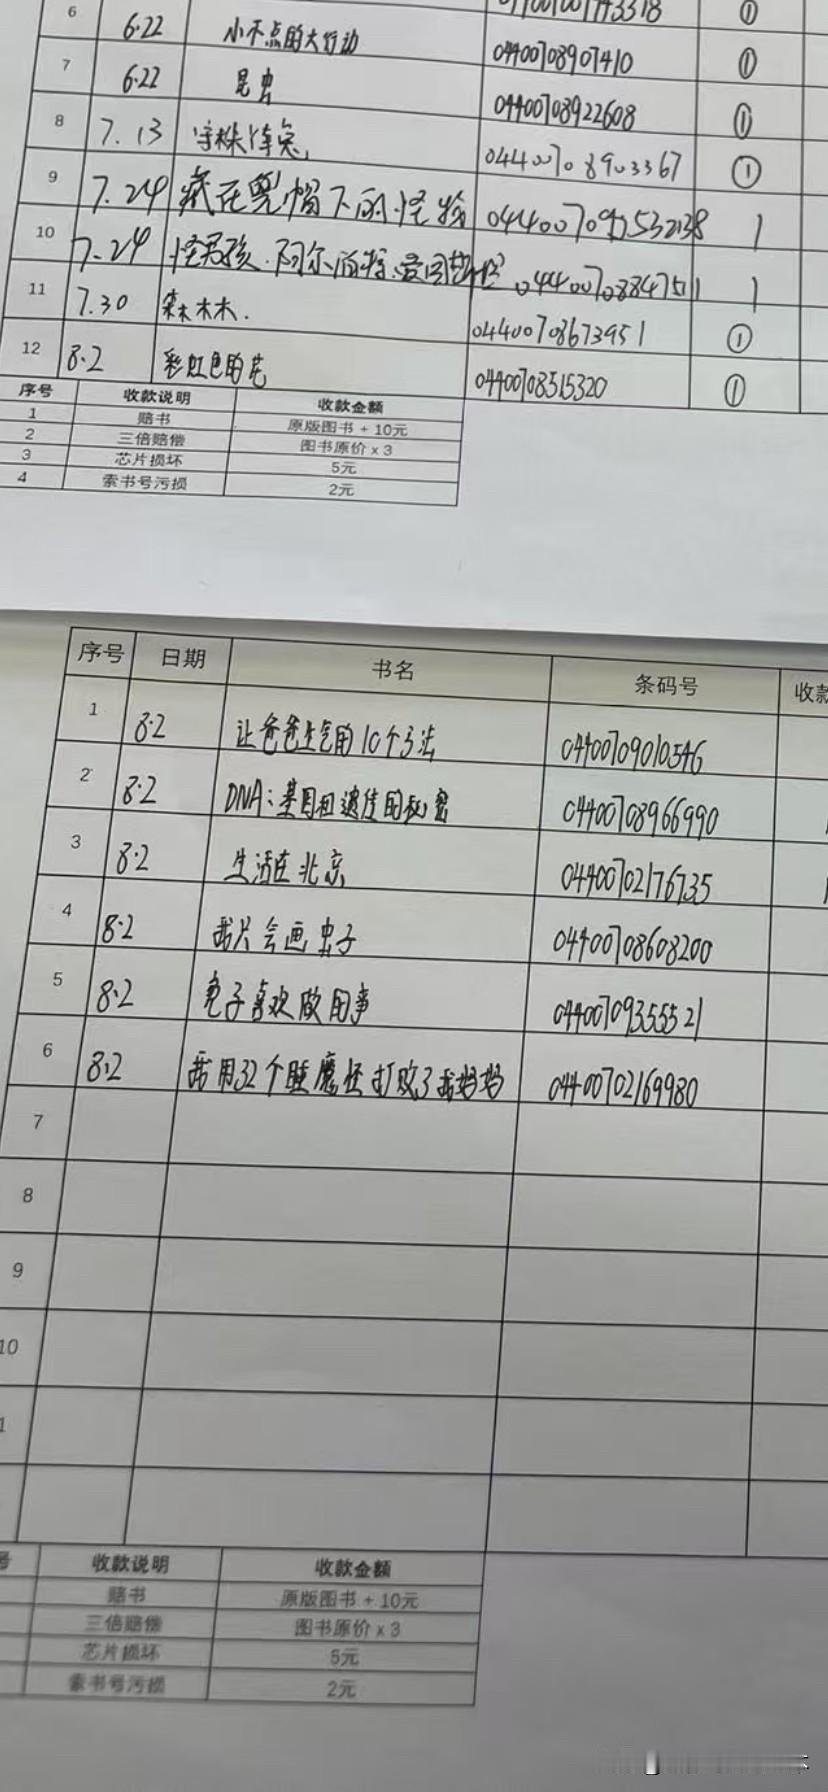 6 6.22 小不点的大行动 04400708907410 ①
7 6.22 昆虫 04400708922608 ①
8 7.13 守株待兔 04400708903367 ①
9 7.24 藏在 帽下的怪物 1
10 7.24 怪男孩.阿尔 1
11 7.30 森林木. 04400708673951 ①
12 8.2 彩虹色的花 04400708515320 ①
序号 收款说明 收款金额
1 赔书 原版图书 + 10元
2 三倍赔偿 图书原价 x 3
3 芯片损坏 5元
4 索书号污损 2元
序号 日期 书名 条码号 收款
1 8.2 让爸爸生气的10个方法 04400709010546
2 8.2 DNA:基因和遗传的秘密 04400708966990
3 8.2 生活在北京 04400702176735
4 8.2 我只会画虫子 04400708608200
5 8.2 兔子喜欢做的事 04400709355521
6 8.2 我用32个睡魔怪打败了我妈妈 04400702169980
7
8
9
10
1
号 收款说明 收款金额
赔书 原版图书 + 10元
三倍赔偿 图书原价 x 3
芯片损坏 5元
索书号污损 2元